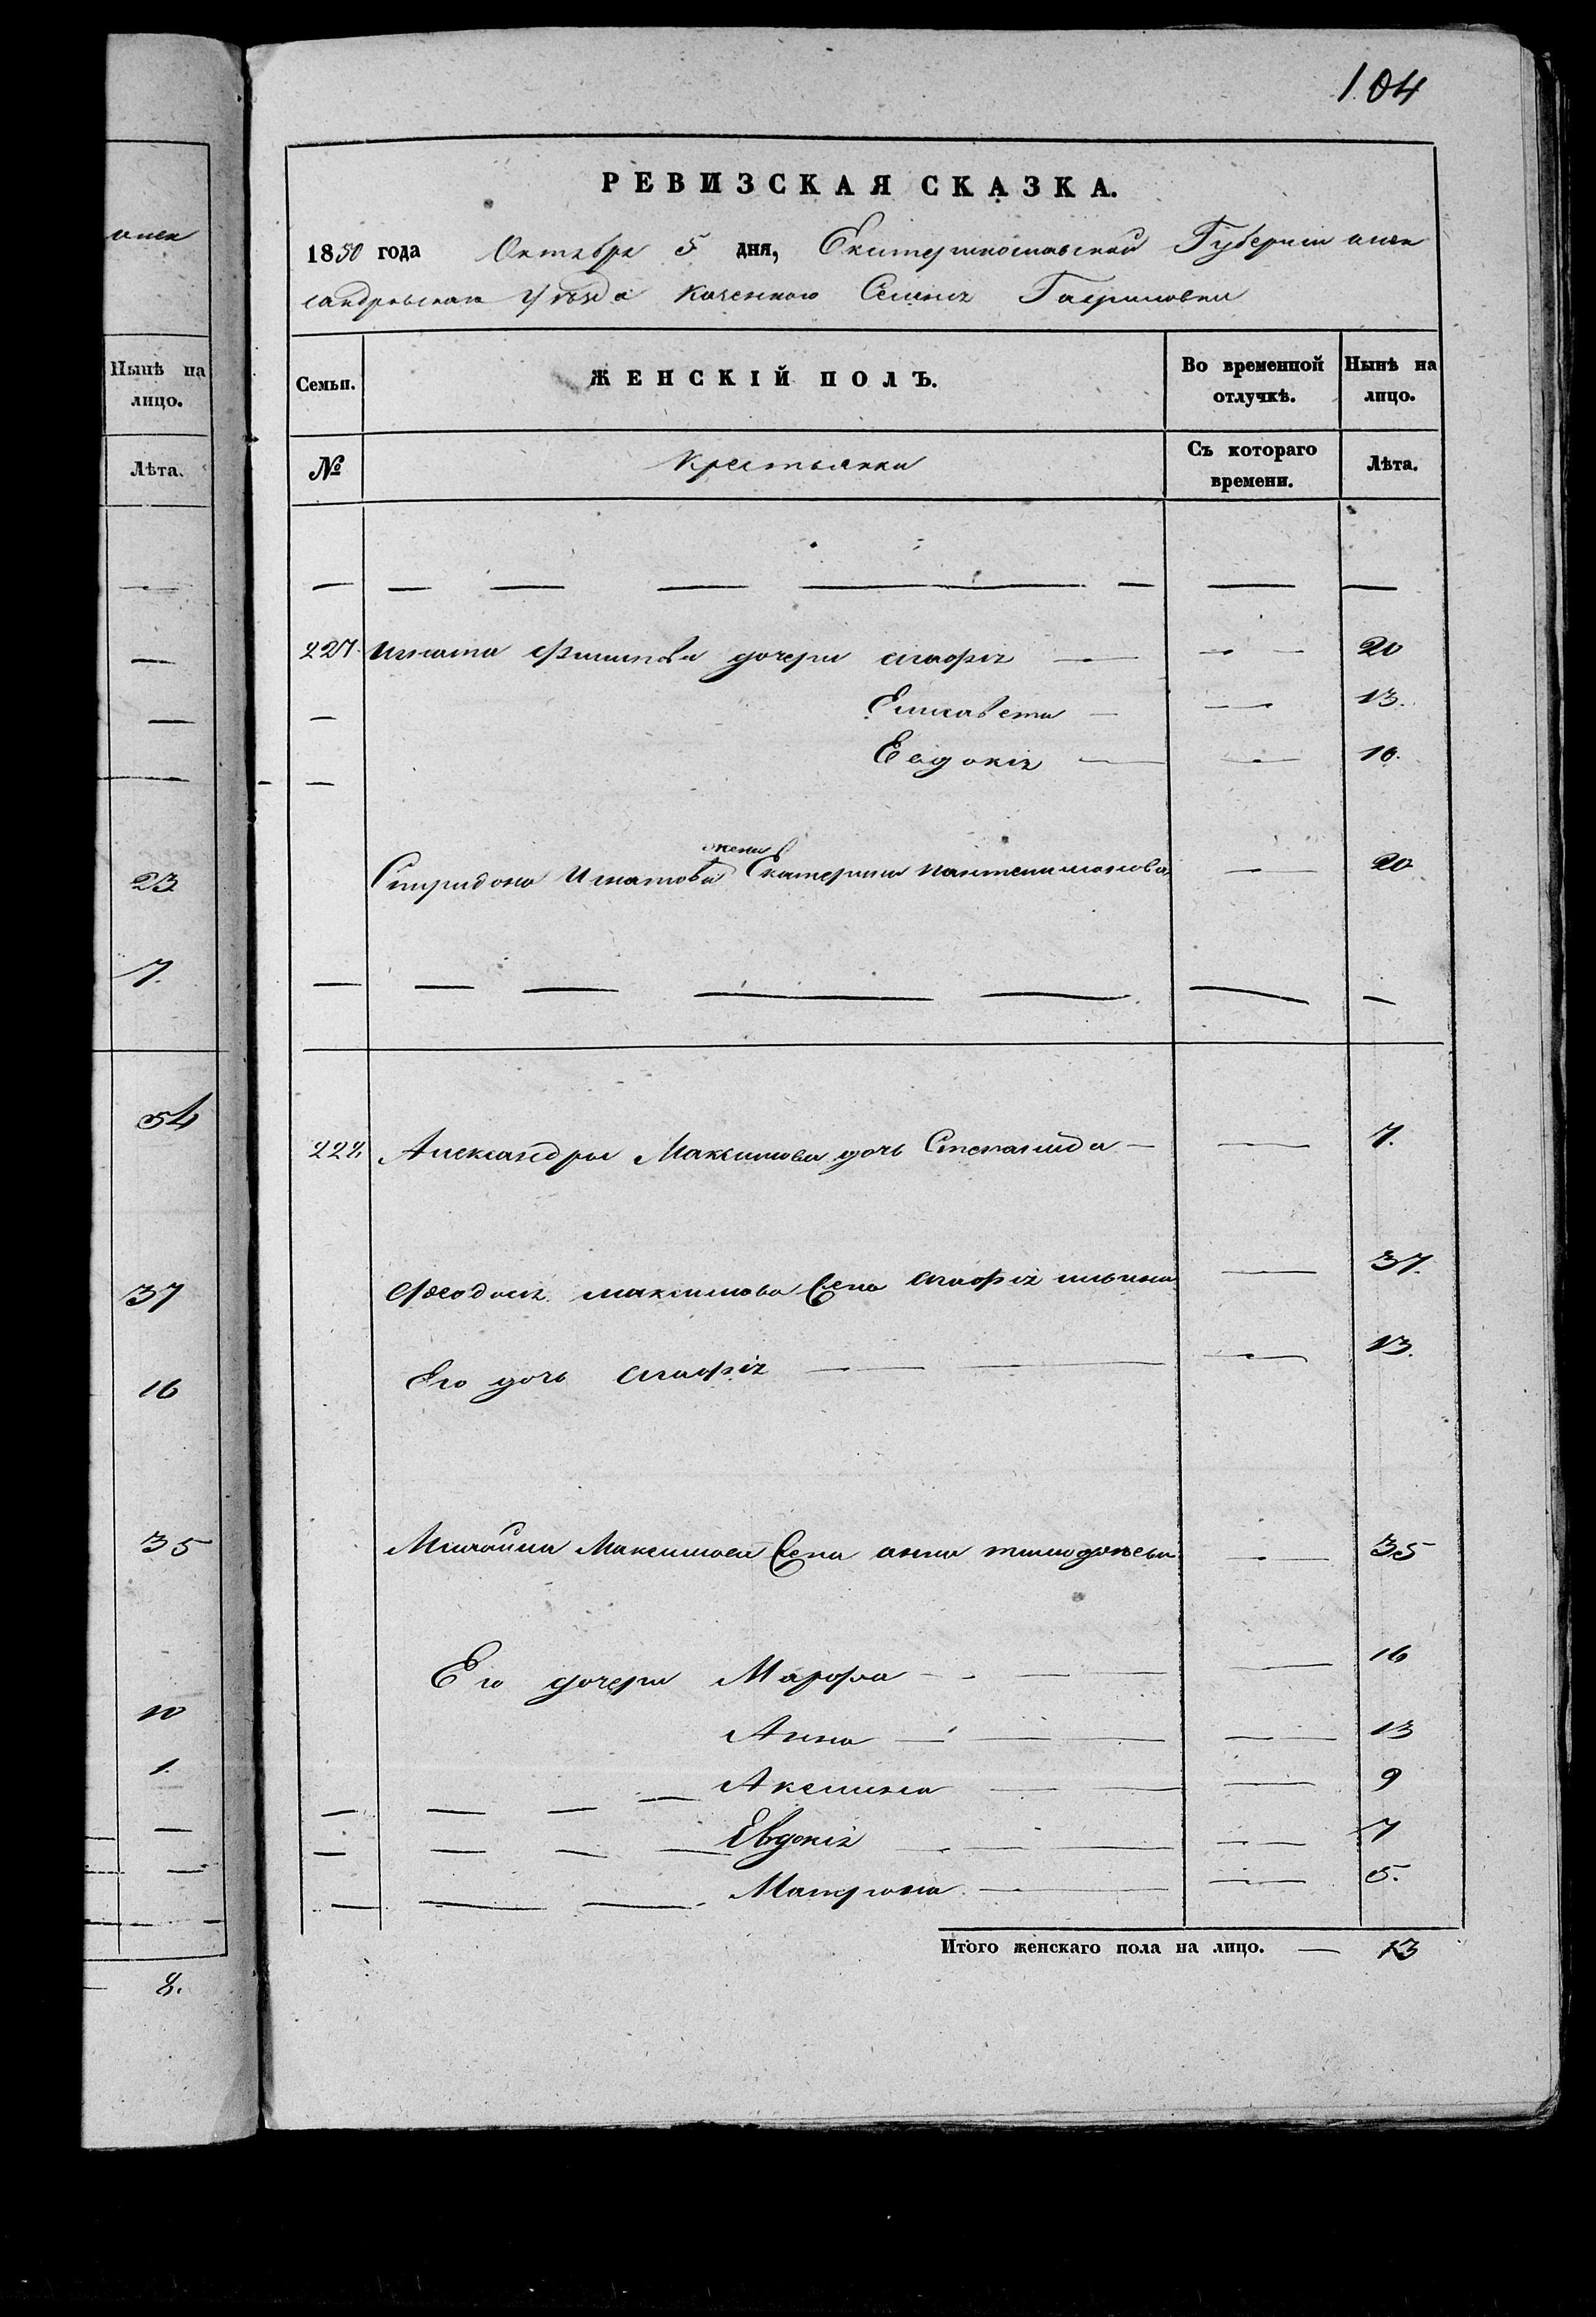 104
РЕВИЗСКАЯ СКАЗКА.
1850 года Октября 5 дня, Екатеринославской Губернии Алек
сандровскаго Уѣзда Казеннаго Селенія Гавриловки
Семьи.
ЖЕНСКІЙ ПОЛЪ.
Во временной отлучкѣ.
Нынѣ на лицо.
№
Крестьянки
Съ котораго времени.
Лѣта.
227. Игната Филипова дочери Агафія 20
Елисавета 13.
Евдокія 10.
жена
Спиридона Игнатова Екатерина Пантелимонова 20
228 Александры Максимова дочь Степанида 7.
Феодосія Максимова Жена Агафія Ильина 37.
Его дочь Агафія 13.
Михайла Максимова Жена Анна Тимофѣева 35
Его дочери Марфа 16
Анна 13
Аксинія 9
Евдокія 7
Матрона 5.
Итого женскаго пола на лицо. 13
Нынѣ на
лицо.
Лѣта.
23
7.
54
37
16
35
10
1.
8.